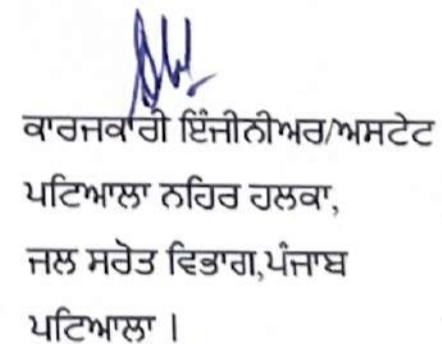 ਕਾਰਜਕਾਰੀ ਇੰਜੀਨੀਅਰ/ਅਸਟੇਟ
ਪਟਿਆਲਾ ਨਹਿਰ ਹਲਕਾ,
ਜਲ ਸਰੋਤ ਵਿਭਾਗ,ਪੰਜਾਬ
ਪਟਿਆਲਾ ।